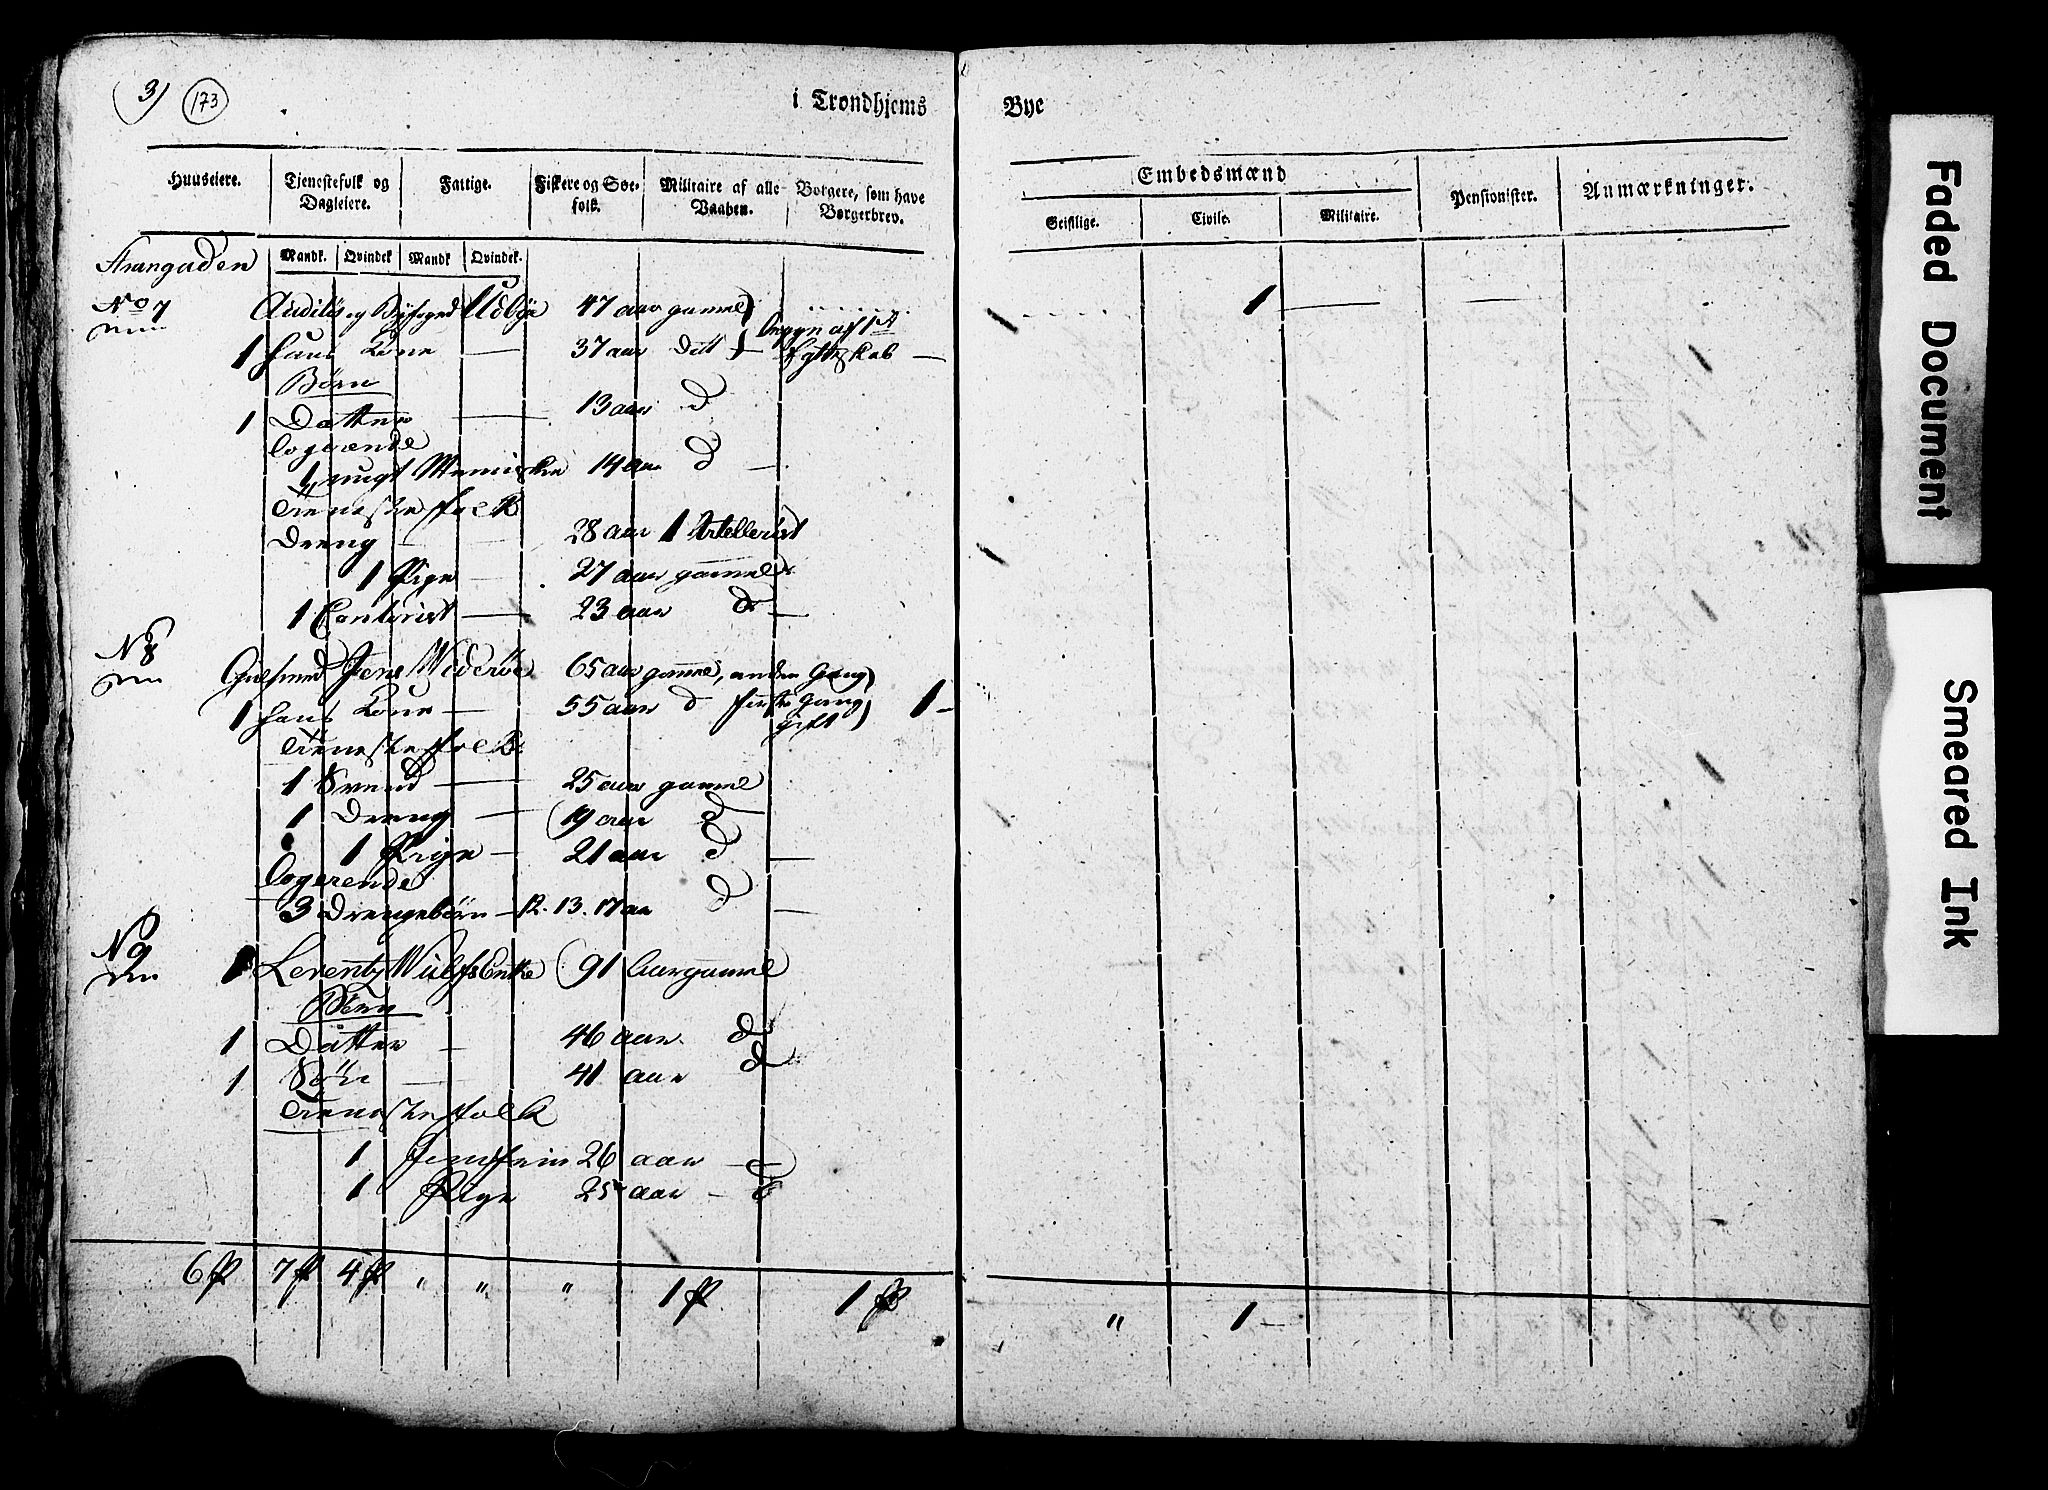 3) 173
i Trondhjems Bye
Huuseiere. Tjenestefolk og Dagleiere. Fattige. Fiskere og Søe-folk. Militaire af alle Vaaben. Borgere, som have Borgerbrev. Embedsmænd Pensionister. Anmærkninger.
Geistlige. Civile. Militaire.
Mandk. Qvindek Mandk Qvindek.
Strangaden
No 7 Auditør og Byfoged 47 aar gammel 1
1 hans Kone 37 aar ditt Begge af 1ste Egteskab
Børn
1 Datter 13 aar d
Logerende
1 ungt Menniske 14 aar d
Tieneste folk
Dreng 28 aar 1 Artellerist
1 Pige 27 aar gammel
1 Contorist 23 aar d
N 8 Gulsmed Jens Widerøe 65 aar gammel, anden Gang
1 hans Kone 55 aar d første Gang gift 1
Tieneste folk
1 Svend 25 aar gammel
1 Dreng 19 aar d
1 Pige 21 aar d
Logerende
3 Drengebørn 12. 13. 17 aar d
N 9 1 Lorentz Wulfs Enke 91 Aar gammel
Børn
1 Datter 46 aar d
1 Søn 41 aar d
Tieneste folk
1 26 aar d
1 Pige 25 aar d
6 7 4 " " " 1 1 " 1
Faded Document
Smeared Ink